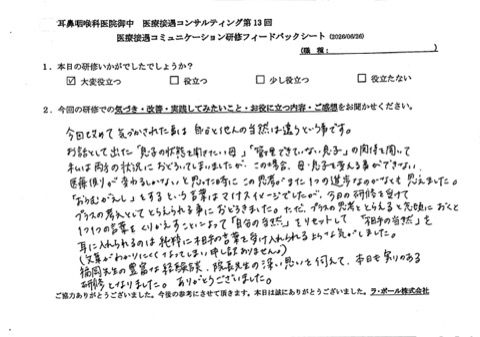 耳鼻咽喉科医院御中　医療接遇コンサルティング第13回
医療接遇コミュニケーション研修フィードバックシート (2026/06/26)
(職 種：　　　　)
1．本日の研修いかがでしたでしょうか？
☑ 大変役立つ　□ 役立つ　□ 少し役立つ　□ 役立たない
2．今回の研修での気づき・改善・実践してみたいこと・お役に立つ内容・ご感想をお聞かせください。
今回改めて気づかされた事は 自分と他人の当然は違うという事です。
お話として出た「息子の状態を聞きたい母」「管理できていない息子」の関係を聞いて
私は両方の状況におどろいてしまいましたが、この場合、母・息子を考える事ができない
医療側が変わるしかないと思った時に この思考がまた1つの進歩なのかなとも 思えました。
「おうむがえし」をするという言葉はマイナスイメージでしたが、今日の研修を受けて
プラスの考えとしてとらえられる事におどろきました。ただ、プラスの思考ととらえると気持におくと
1つ1つの言葉をくりかえすことによって「自分の当然」をリセットして「相手の当然」を
耳に入れられるのは 純粋に相手の言葉を受け入れられるような気がしました。
(文章がわかりにくくなってしまい申し訳ありません。)
福岡先生の豊富な経験談、院長先生の深い思いを伺えて、本日も実りのある
研修となりました。ありがとうございました。
ご協力ありがとうございました。今後の参考にさせて頂きます。本日は誠にありがとうございました。ラ・ポール株式会社